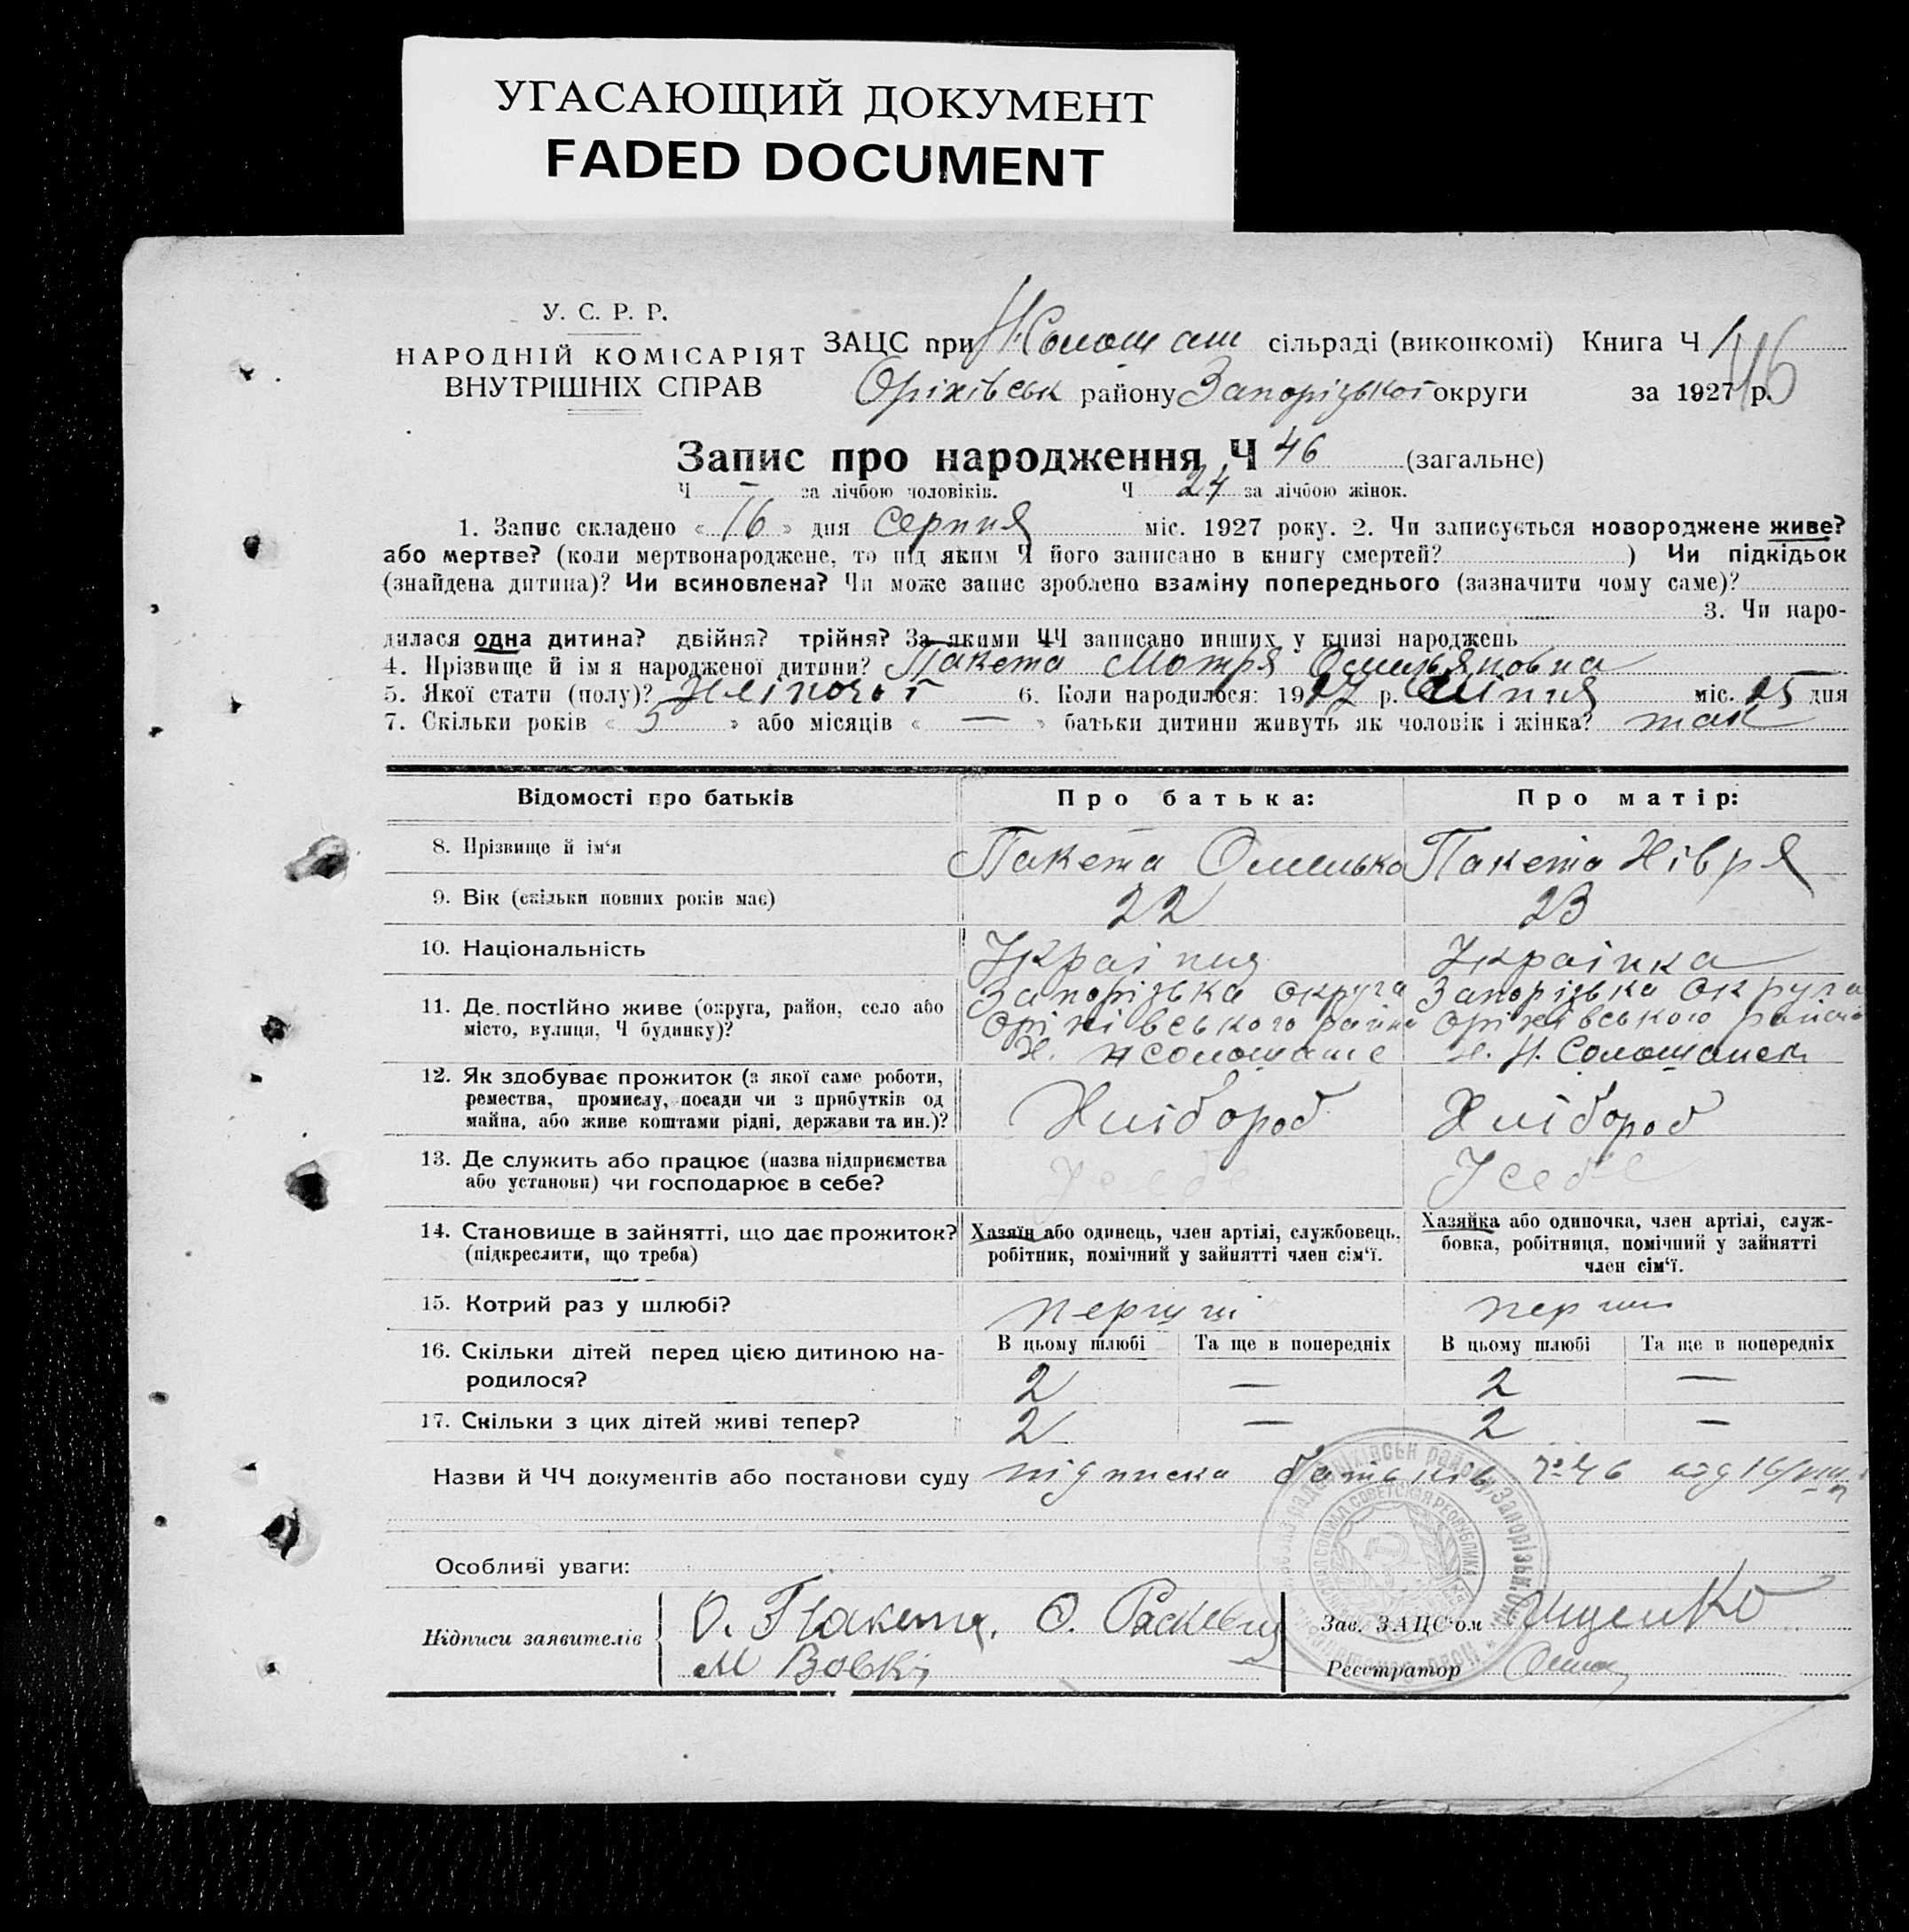 УГАСАЮЩИЙ ДОКУМЕНТ
FADED DOCUMENT
У. С. Р. Р.
НАРОДНІЙ КОМІСАРІЯТ
ВНУТРІШНІХ СПРАВ
ЗАЦС при сільраді (виконкомі) Книга Ч 1
46
Оріхівськ району Запорізької округи за 1927 р.
Запис про народження Ч 46 (загальне)
Ч — за лічбою чоловіків. Ч 24 за лічбою жінок.
1. Запис складено « 16 » дня Серпня міс. 1927 року. 2. Чи записується новороджене живе?
або мертве? (коли мертвонароджене, то під яким Ч його записано в книгу смертей? ) Чи підкідьок
(знайдена дитина)? Чи всиновлена? Чи може запис зроблено взаміну попереднього (зазначити чому саме)?
3. Чи наро-
дилася одна дитина? двійня? трійня? За якими ЧЧ записано инших у книзі народжень
4. Прізвище й ім я народженої дитини? Пакета Мотря Омельяновна
5. Якої стати (полу)? Жіночої 6. Коли народилося: 1927 р. Липня міс. 25 дня
7. Скільки років « 5 » або місяців « — » батьки дитини живуть як чоловік і жінка? так
Відомості про батьків Про батька: Про матір:
8. Прізвище й ім‘я Пакета Омелько Пакета Хівря
9. Вік (скільки повних років має) 22 23
10. Національність Українця Українка
11. Де постійно живе (округа, район, село або
місто, вулиця, Ч будинку)?
Запорізька округа Запорізька округа
Оріхівського району Оріхівського району
12. Як здобуває прожиток (з якої саме роботи,
ремества, промислу, посади чи з прибутків од
майна, або живе коштами рідні, держави та ин.)?
Хлібороб Хлібороб
13. Де служить або працює (назва підприємства
або установи) чи господарює в себе?
У себе У себе
14. Становище в зайнятті, що дає прожиток?
(підкреслити, що треба)
Хазяїн або одинець, член артілі, службовець,
робітник, помічний у зайнятті член сім‘ї.
Хазяйка або одиночка, член артілі, служ-
бовка, робітниця, помічний у зайнятті
член сім‘ї.
15. Котрий раз у шлюбі? перший перший
16. Скільки дітей перед цією дитиною на-
родилося?
В цьому шлюбі Та ще в попередніх В цьому шлюбі Та ще в попередніх
2 — 2 —
17. Скільки з цих дітей живі тепер? 2 — 2 —
Назви й ЧЧ документів або постанови суду підписка батьків № 46 від 16/VIII
Особливі уваги:
Підписи заявителів О. Пакета. О.
М Вовк
Зав. ЗАЦС‘ом Іщенко
Реєстратор